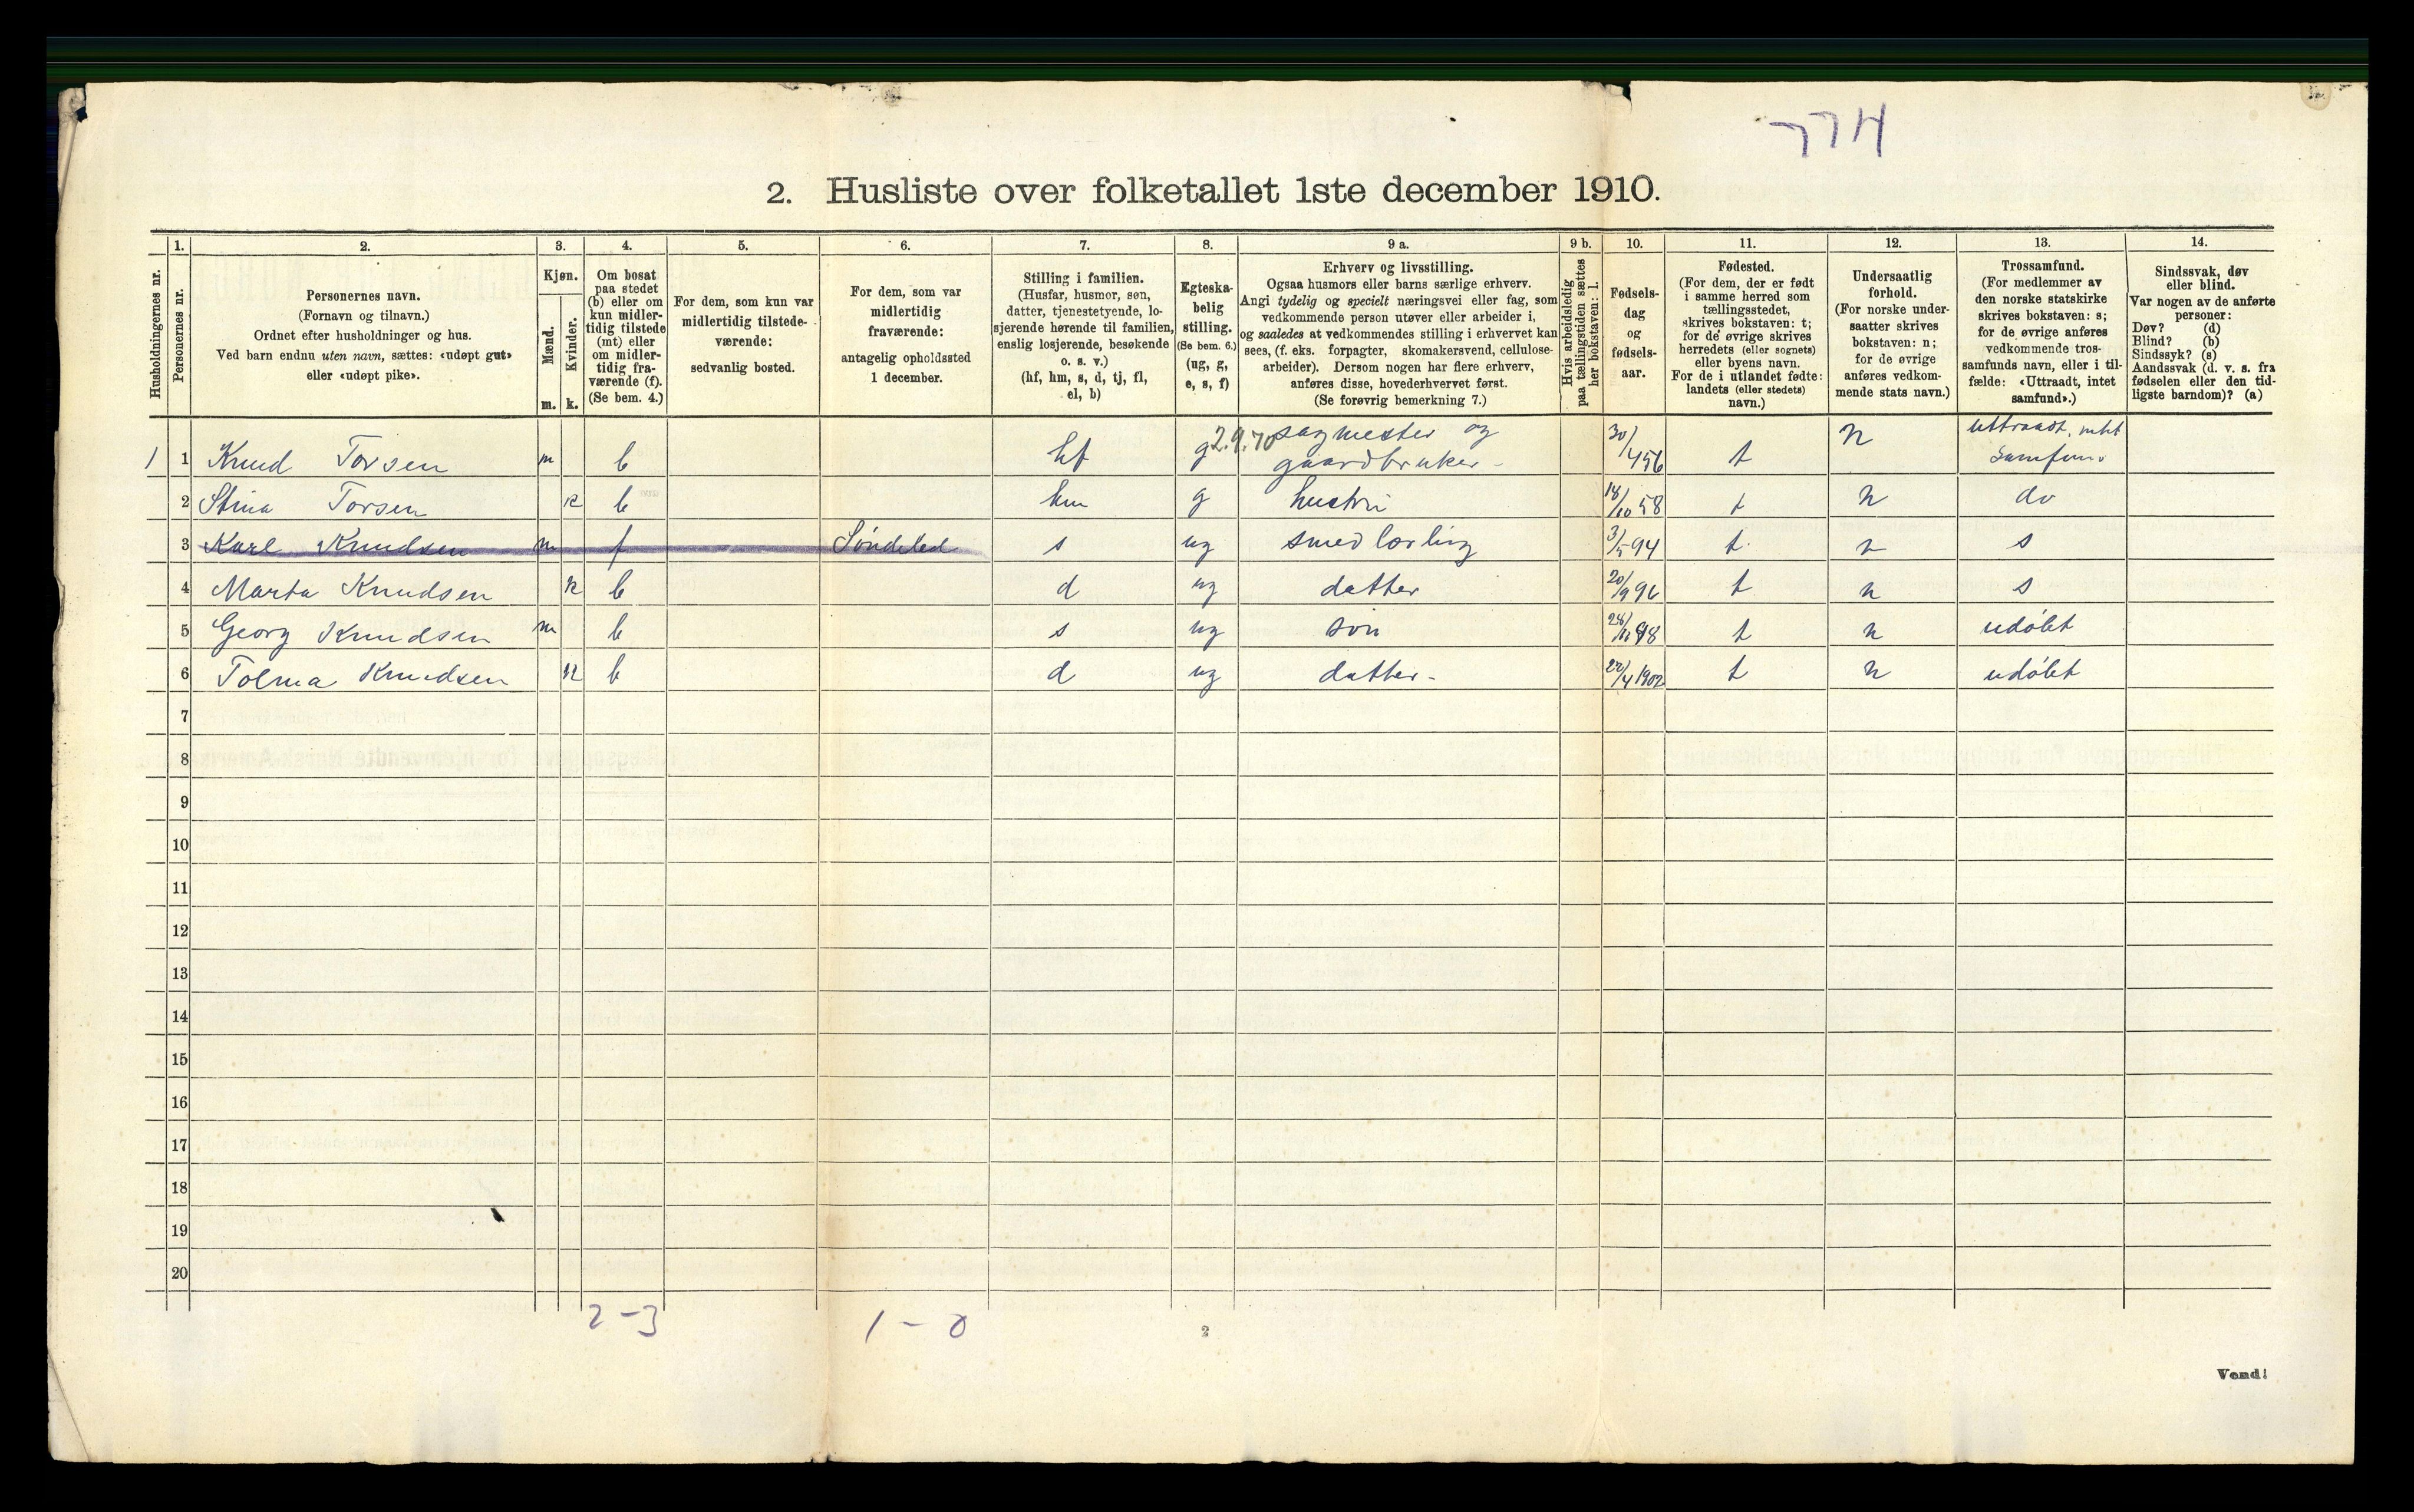 774
2. Husliste over folketallet 1ste december 1910.
Husholdningernes nr.
1.
Personernes nr.
2.
Personernes navn.
(Fornavn og tilnavn.)
Ordnet efter husholdninger og hus.
Ved barn endnu uten navn, sættes: «udøpt gut»
eller «udøpt pike».
3.
Kjøn.
Mænd.
Kvinder.
m. k.
4.
Om bosat
paa stedet
(b) eller om
kun midler-
tidig tilstede
(mt) eller
om midler-
tidig fra-
værende (f).
(Se bem. 4.)
5.
For dem, som kun var
midlertidig tilstede-
værende:
sedvanlig bosted.
6.
For dem, som var
midlertidig
fraværende:
antagelig opholdssted
1 december.
7.
Stilling i familien.
(Husfar, husmor, søn,
datter, tjenestetyende, lo-
sjerende hørende til familien,
enslig losjerende, besøkende
o. s. v.)
(hf, hm, s, d, tj, fl,
el, b)
8.
Egteska-
belig
stilling.
(Se bem. 6.)
(ug, g,
e, s, f)
9 a.
Erhverv og livsstilling.
Ogsaa husmors eller barns særlige erhverv.
Angi tydelig og specielt næringsvei eller fag, som
vedkommende person utøver eller arbeider i,
og saaledes at vedkommendes stilling i erhvervet kan
sees, (f. eks. forpagter, skomakersvend, cellulose-
arbeider). Dersom nogen har flere erhverv,
anføres disse, hovederhvervet først.
(Se forøvrig bemerkning 7.)
9 b.
Hvis arbeidsledig
paa tællingstiden sættes
her bokstaven: l.
10.
Fødsels-
dag
og
fødsels-
aar.
11.
Fødested.
(For dem, der er født
i samme herred som
tællingsstedet,
skrives bokstaven: t;
for de øvrige skrives
herredets (eller sognets)
eller byens navn.
For de i utlandet fødte:
landets (eller stedets)
navn.)
12.
Undersaatlig
forhold.
(For norske under-
saatter skrives
bokstaven: n;
for de øvrige
anføres vedkom-
mende stats navn.)
13.
Trossamfund.
(For medlemmer av
den norske statskirke
skrives bokstaven: s;
for de øvrige anføres
vedkommende tros-
samfunds navn, eller i til-
fælde: «Uttraadt, intet
samfund».)
14.
Sindssvak, døv
eller blind.
Var nogen av de anførte
personer:
Døv? (d)
Blind? (b)
Sindssyk? (s)
Aandssvak (d. v. s. fra
fødselen eller den tid-
ligste barndom)? (a)
1 1 Knud Torsen m b hf g 2.9.70 sagmester og gaardbruker - 30/4 56 t n uttraadt, intet samfun.
2 Stina Torsen k b hm g hustru 18/10 58 t n do
3 Karl Knudsen m f Søndeled s ug smedlærling 3/5 94 t n s
4 Marta Knudsen k b d ug datter 20/9 96 t n s
5 Georg Knudsen m b s ug søn 28/11 98 t n udøbt
6 Tolma Knudsen k b d ug datter - 22/4 1902 t n udøbt
7
8
9
10
11
12
13
14
15
16
17
18
19
20
2 - 3 1 - 0
2
Vend!